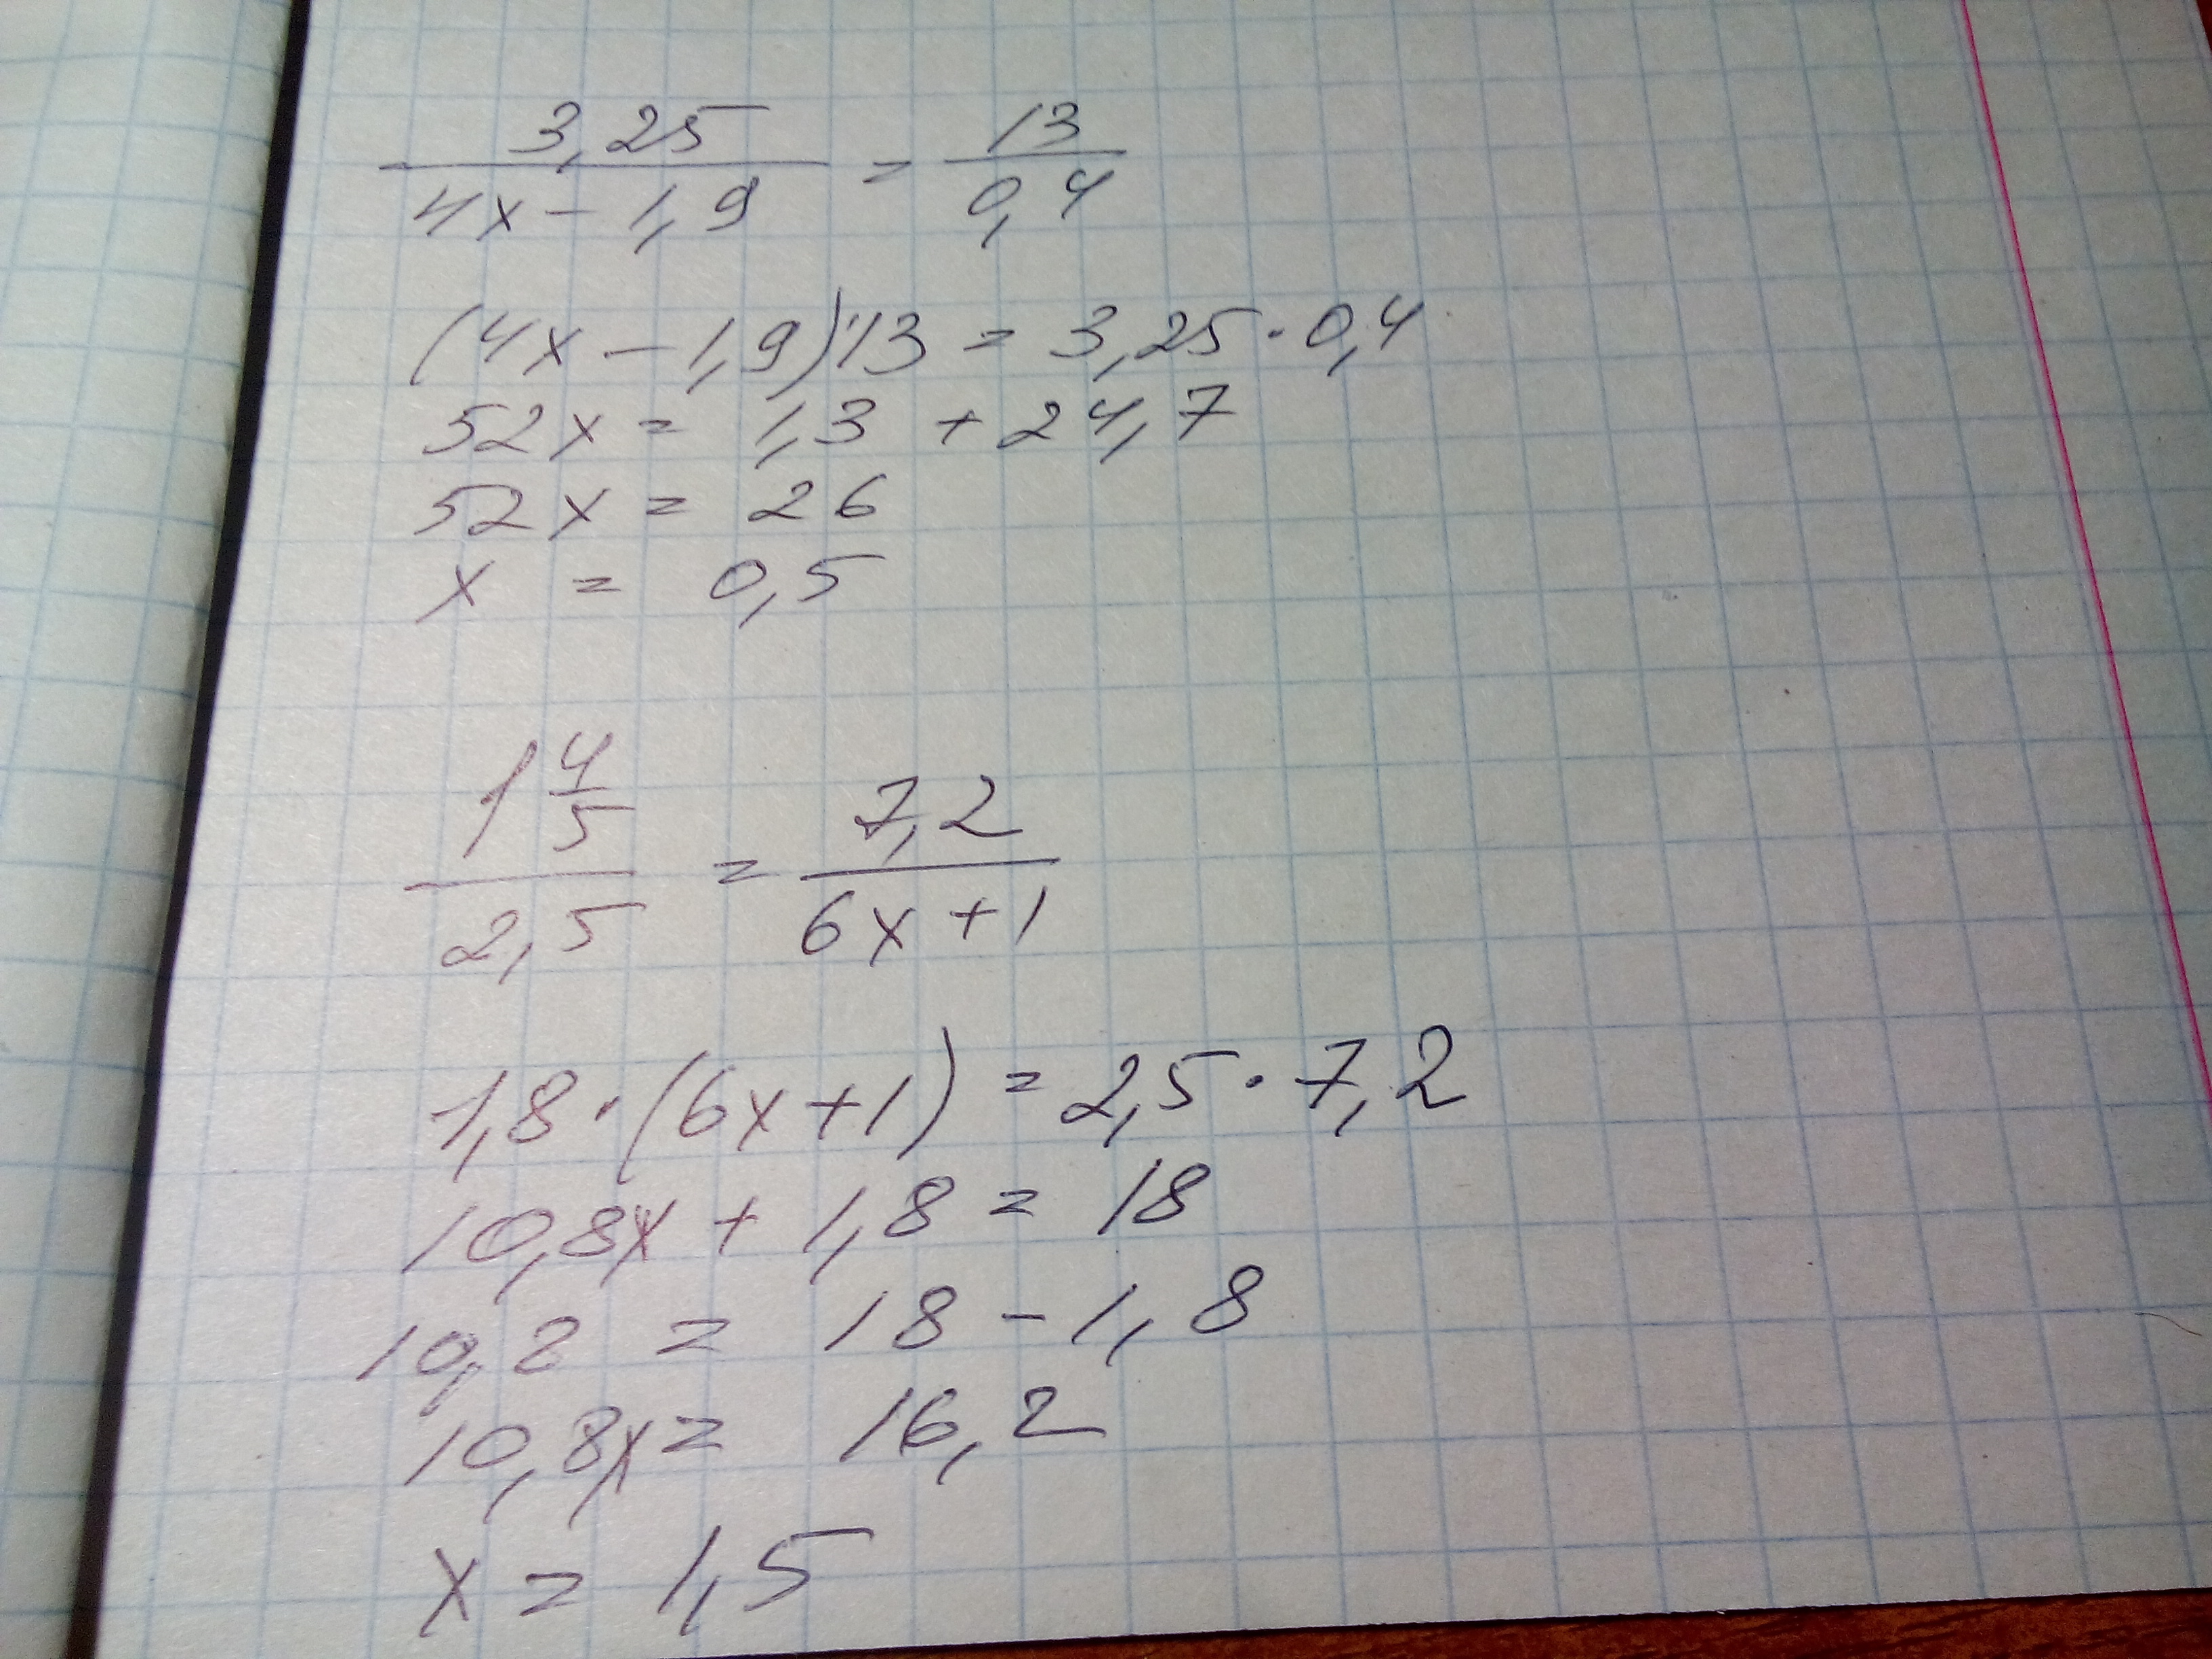 3,25 / 4x - 1,9 = 13 / 0,4
(4x - 1,9)·13 = 3,25 · 0,4
52x = 1,3 + 24,7
52x = 26
x = 0,5
1 4/5 / 2,5 = 7,2 / 6x + 1
1,8 · (6x + 1) = 2,5 · 7,2
10,8x + 1,8 = 18
10,8 = 18 - 1,8
10,8x = 16,2
x = 1,5